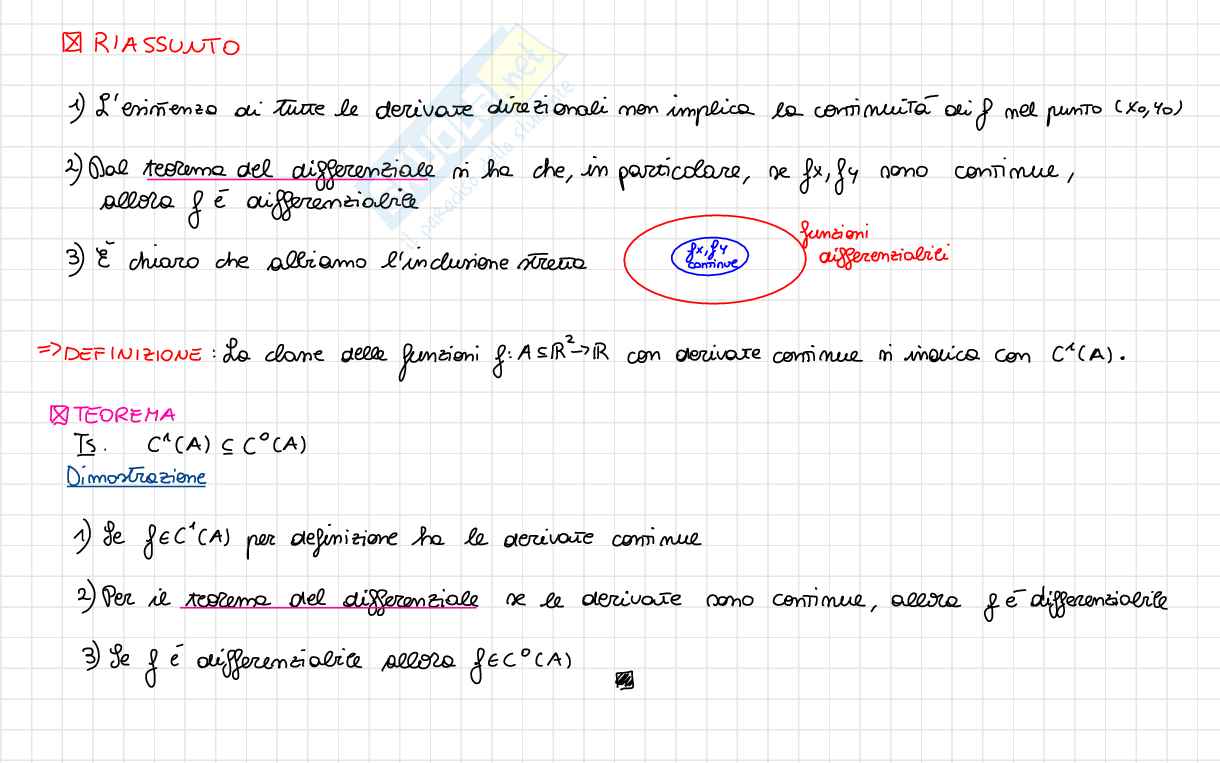 RIASSUNTO
1) L'esistenza di tutte le derivate direzionali non implica la continuità di f nel punto (x0,y0)
2) Dal teorema del differenziale si ha che, in particolare, se fx, fy sono continue,
allora f è differenziabile
3) È chiaro che abbiamo l'inclusione stretta
fx, fy
continue
funzioni
differenziabili
=> DEFINIZIONE: La classe delle funzioni f: A⊆ℝ²→ℝ con derivate continue si indica con C¹(A).
TEOREMA
Ts. C¹(A) ⊆ C⁰(A)
Dimostrazione
1) Se f∈C¹(A) per definizione ha le derivate continue
2) Per il teorema del differenziale se le derivate sono continue, allora f è differenziabile
3) Se f è differenziabile allora f∈C⁰(A)